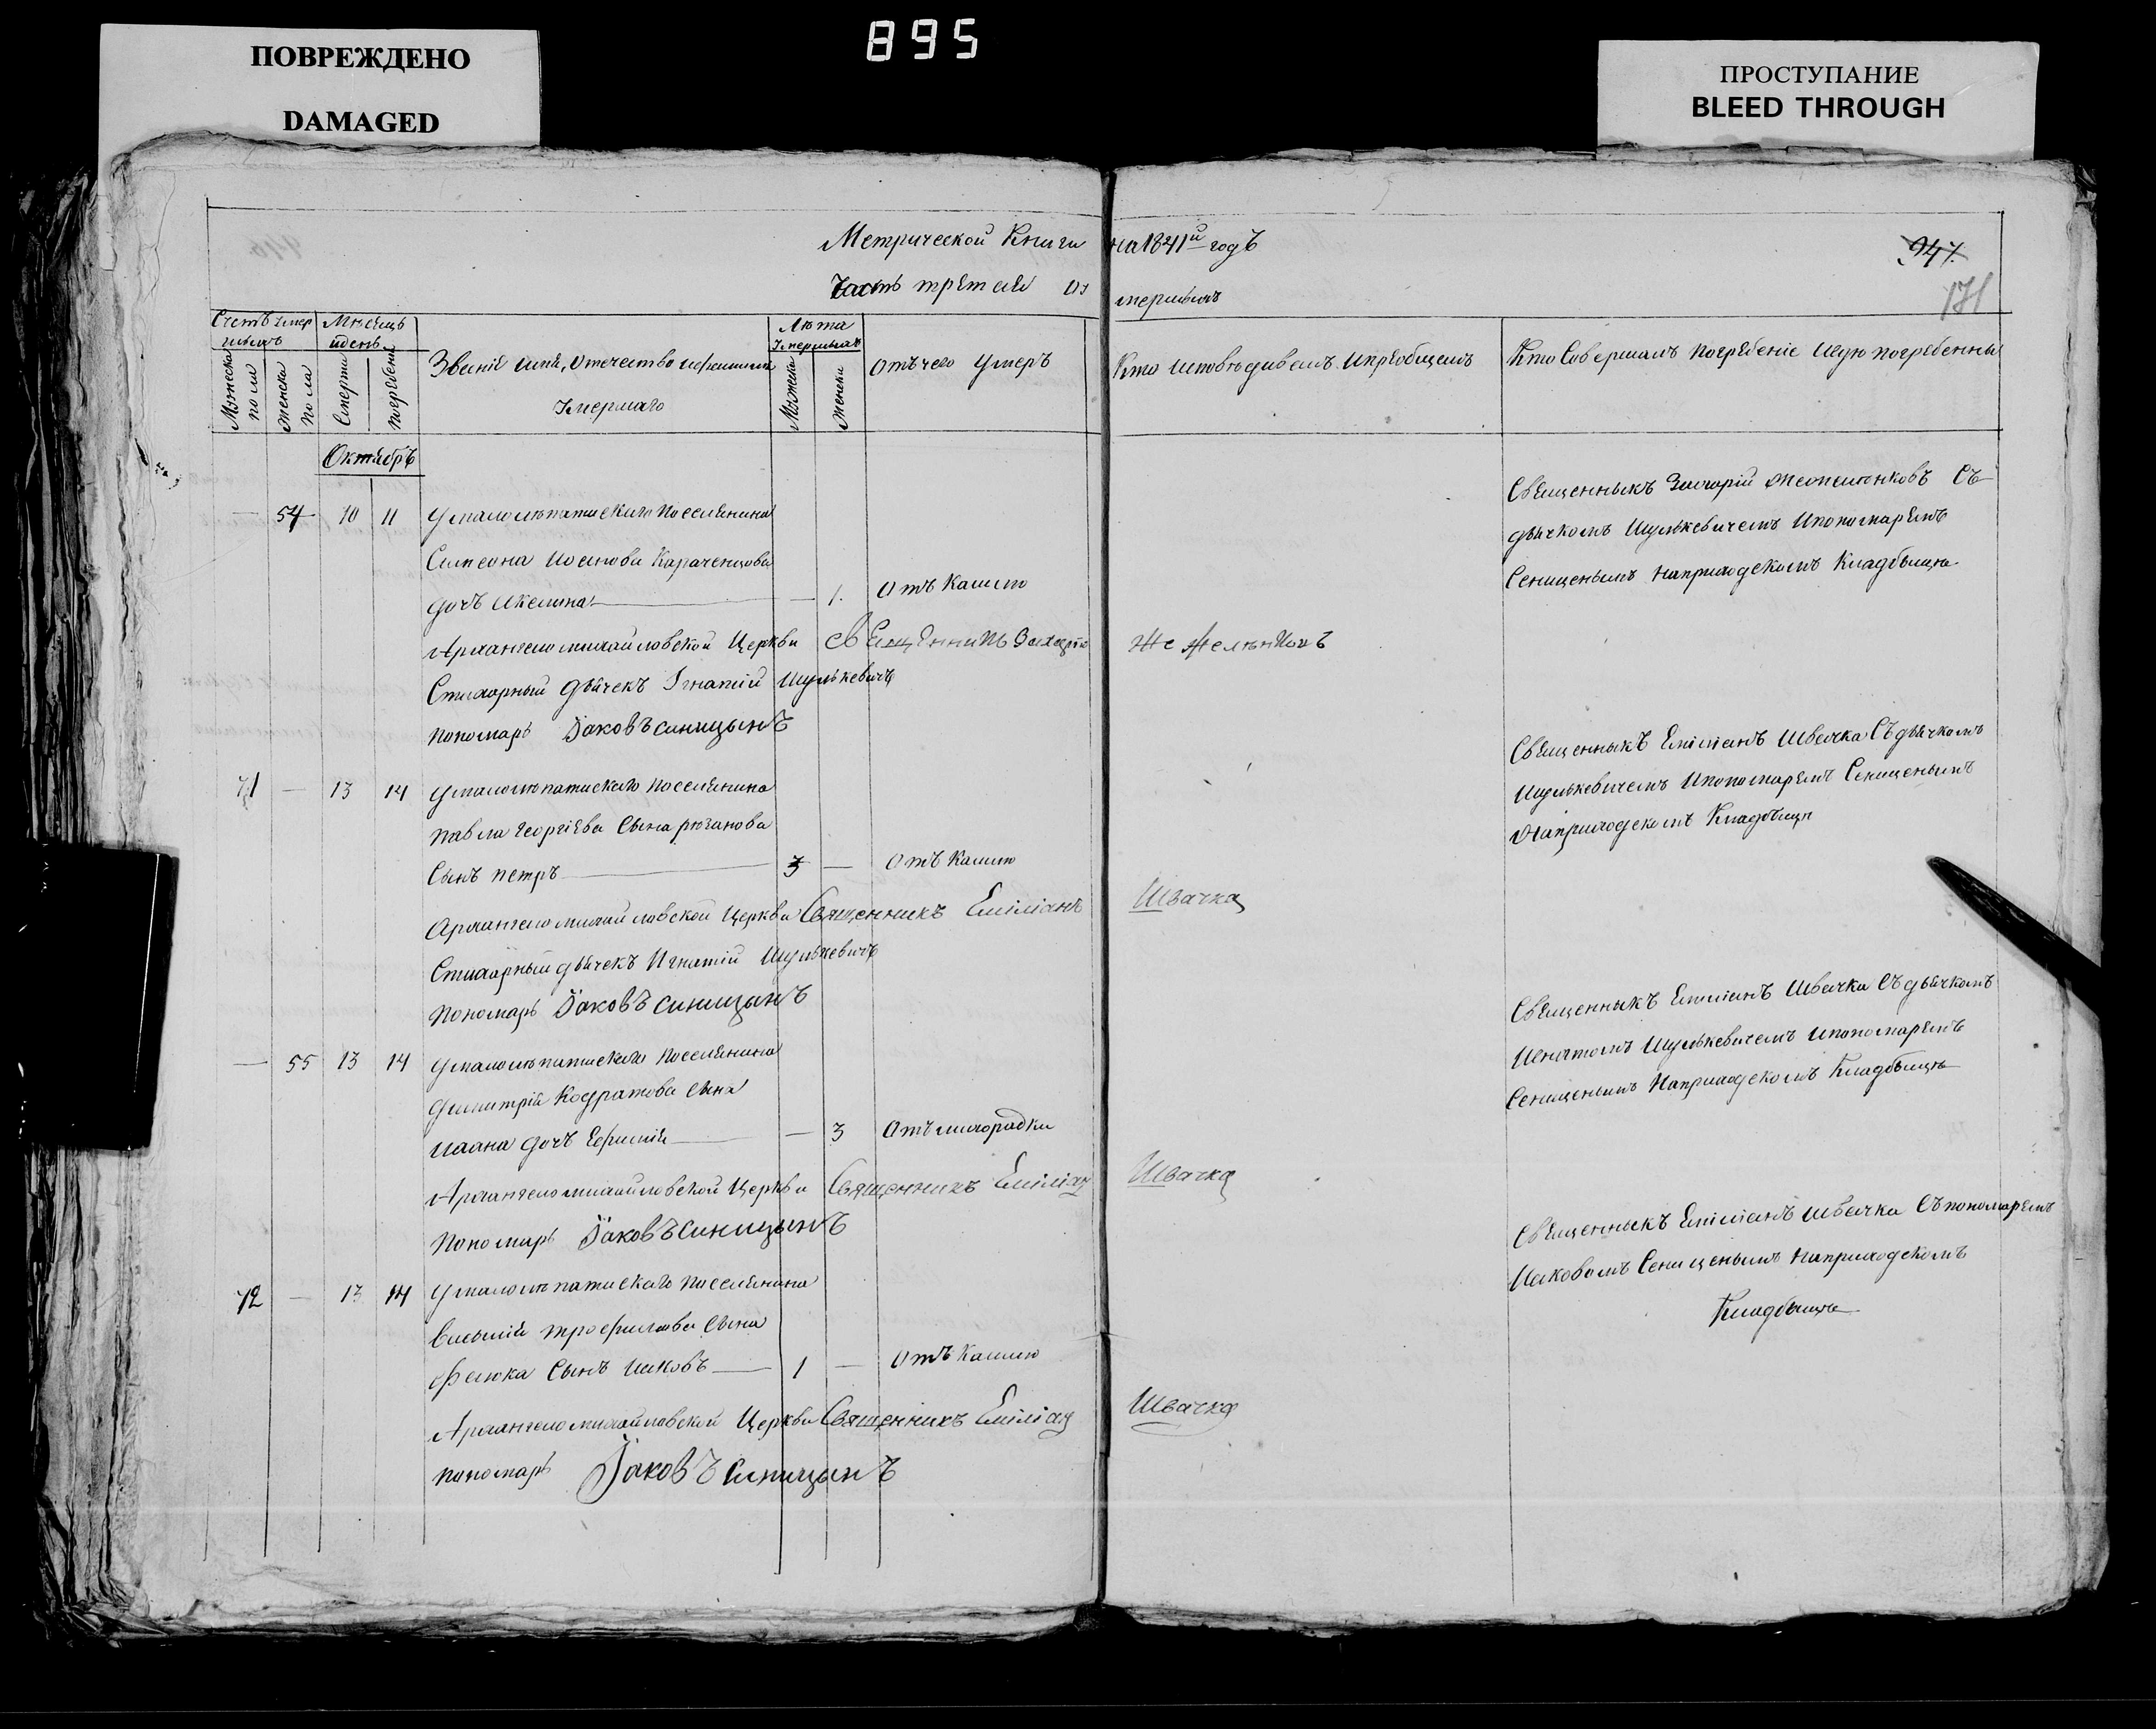 895
ПОВРЕЖДЕНО
DAMAGED
ПРОСТУПАНИЕ
BLEED THROUGH
Метрической Книги на 1841й годъ
947.
171
Часть третая оу мершыхъ
Счетъ умер шыхъ
Мѣсяцъ и день
Лѣта умершыхъ
Мужеска пола
Женска пола
Смерти
погребенія
Званіе имя, отечество и фамилия умершаго
Мужеска
Женска
Отъ чего умеръ
Кто исповѣдивалъ и приобщалъ
Кто Совершалъ погребеніе и гдѣ погребенны
Октябръ
— 54 10 11 Умаломъпатискаго поселянина
Симеона Иосипова Караченцова
дочъ Акелина — — 1. Отъ Кашлю
Священныкъ Захарій Съ
дьячкомъ Шулькевичемъ и пономаремъ
Сениценымъ наприходскомъ Кладбыщѣ
Архангеломихайловской Церкви Священникъ Захарій
Стихарный дьячекъ Игнатий Шулькевичъ
пономарь Іаковъ Синицынъ
71 — 13 14 Умаломъпатискаго поселянина
павла георгіева Сына рюзанова
Сынъ петръ — 3 — Отъ Кашлю
Священныкъ Еміліанъ Швачка Съ дьячкомъ
Шулькевичемъ и пономаремъ Сениценымъ
Наприходскомъ Кладбыщѣ
Архангеломихайловской Церкви Священникъ Еміліанъ Швачка
Стихарный дьячекъ Игнатій Шулькевичъ
пономарь Іаковъ Синицынъ
— 55 13 14 Умаломъпатискаго поселянина
Димитрія Кодратова Сына
дочъ Ефимія — — 3 Отъ лихорадки
Священныкъ Еміліанъ Швачка Съ дьячкомъ
Игнатомъ Шулькевичемъ и пономаремъ
Сениценымъ Наприходскомъ Кладбыщѣ
Архангеломихайловской Церкви Священникъ Еміліан Швачка
пономарь Іаковъ Синицынъ
72 — 13 14 Умаломъпатискаго поселянина
Василія трофимова Сына
Сынъ Иаковъ — 1 — Отъ Кашлю
Священныкъ Еміліанъ Швачка Съ пономаремъ
Иаковомъ Сениценымъ Наприходскомъ
Кладбыщѣ
Архангеломихайловской Церкви Священникъ Еміліан Швачка
пономарь Іаковъ Синицынъ